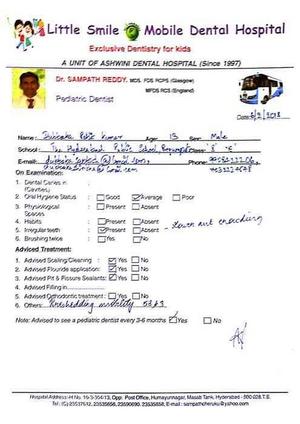 Little Smile Mobile Dental Hospital
Exclusive Dentistry for kids
A UNIT OF ASHWINI DENTAL HOSPITAL (Since 1997)
Dr. SAMPATH REDDY, MDS, FDS RCPS (Glasgow)
MFDS RCS (England)
Pediatric Dentist
Date:
Name: Kumar Age: 13 Sex: Male
School: The Hyderabad Public School,
E-mail: Phone:
On Examination:
1. Dental Caries in : (Cavities)
2. Oral Hygiene Status : Good Average Poor
3. Physiological Spaces : Present Absent
4. Habits : Present Absent
5. Irregular teeth : Present Absent - Lower ant crowding
6. Brushing twice : Yes No
Adviced Treatment:
1. Advised Scaling/Cleaning : Yes No
2. Advised Flouride application: Yes No
3. Advised Pit & Fissure Sealants: Yes No
4. Advised Filling in
5. Advised Orthodontic treatment : Yes No
6. Others: Preshedding mobility
Note: Advised to see a pediatric dentist every 3-6 months Yes No
Hospital Address - H No. Opp. Post Office, Humayunnagar, Masab Tank, Hyderabad - 500 028.T.S.